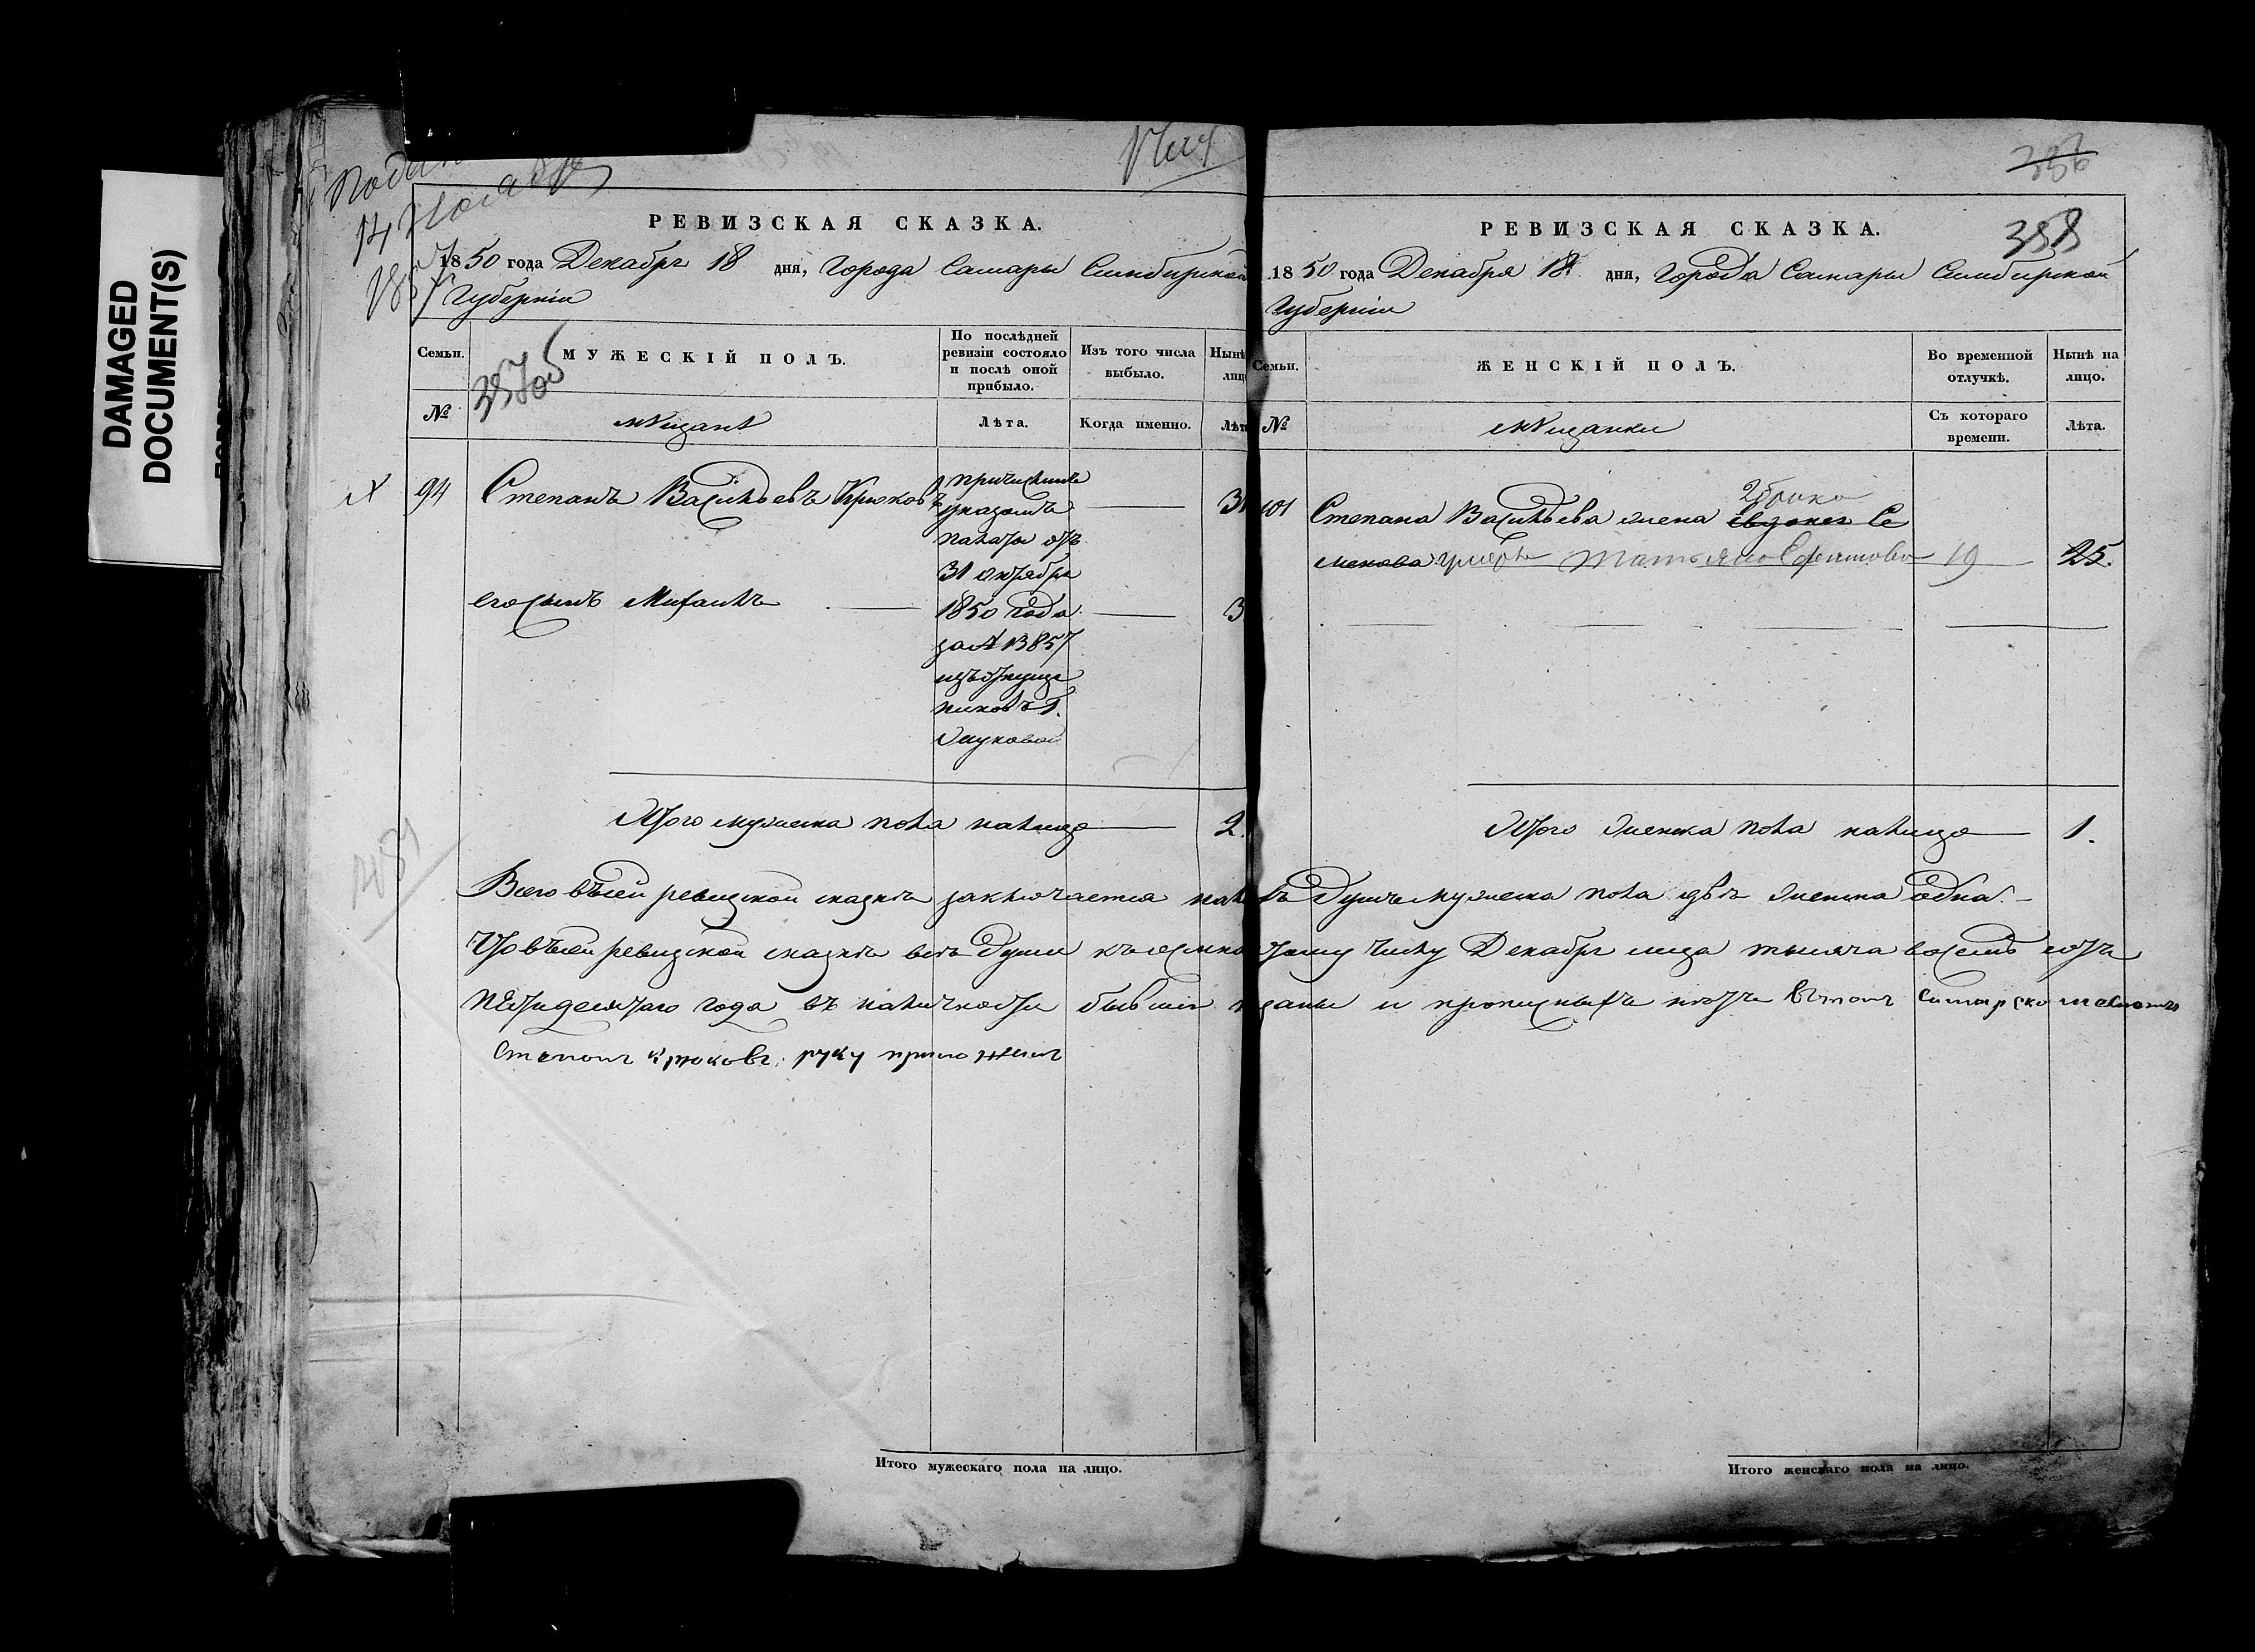 DAMAGED
DOCUMENT(S)
14 Ноября
1857
РЕВИЗСКАЯ СКАЗКА.
1850 года Декабря 18 дня, Города Самары Симбирской
Губерніи
Семьи.
МУЖЕСКІЙ ПОЛЪ.
По послѣдней
ревизіи состояло
и послѣ оной
прибыло.
Изъ того числа
выбыло.
Нынѣ
№
мѣщане
Лѣта.
Когда именно.
94 Степанъ Васильевъ Крюковъ
причисленъ
указомъ
палаты отъ
31 октября
1850 года
за № 13857
изъ отпуще
никовъ Г.
Жуковой
31
его сынъ Михаилъ
3
Итого мужеска пола налицо 2.
РЕВИЗСКАЯ СКАЗКА.
356
358
1850 года Декабря 18 дня, Города Самары Симбирской
Губерніи
Семьи.
ЖЕНСКІЙ ПОЛЪ.
Во временной
отлучкѣ.
Нынѣ на
лицо.
№
мѣщанки
Съ котораго
времени.
Лѣта.
2 брака
101 Степана Васильева жена Се
менова умерла Татьяна Ефимова 19 25.
Итого женска пола налицо 1.
Всего в сей ревизской сказкѣ заключается душъ мужеска пола двѣ женска одна.
Что в сей ревизской сказкѣ всѣ души къ осмнадцатому числу Декабря мца тысяча восемь сотъ
пятидесятаго года въ наличности бывшія и прописныхъ нѣтъ втомъ самарской
Степанъ Крюковъ руку приложилъ
Итого мужескаго пола на лицо.
Итого женскаго пола на лицо.